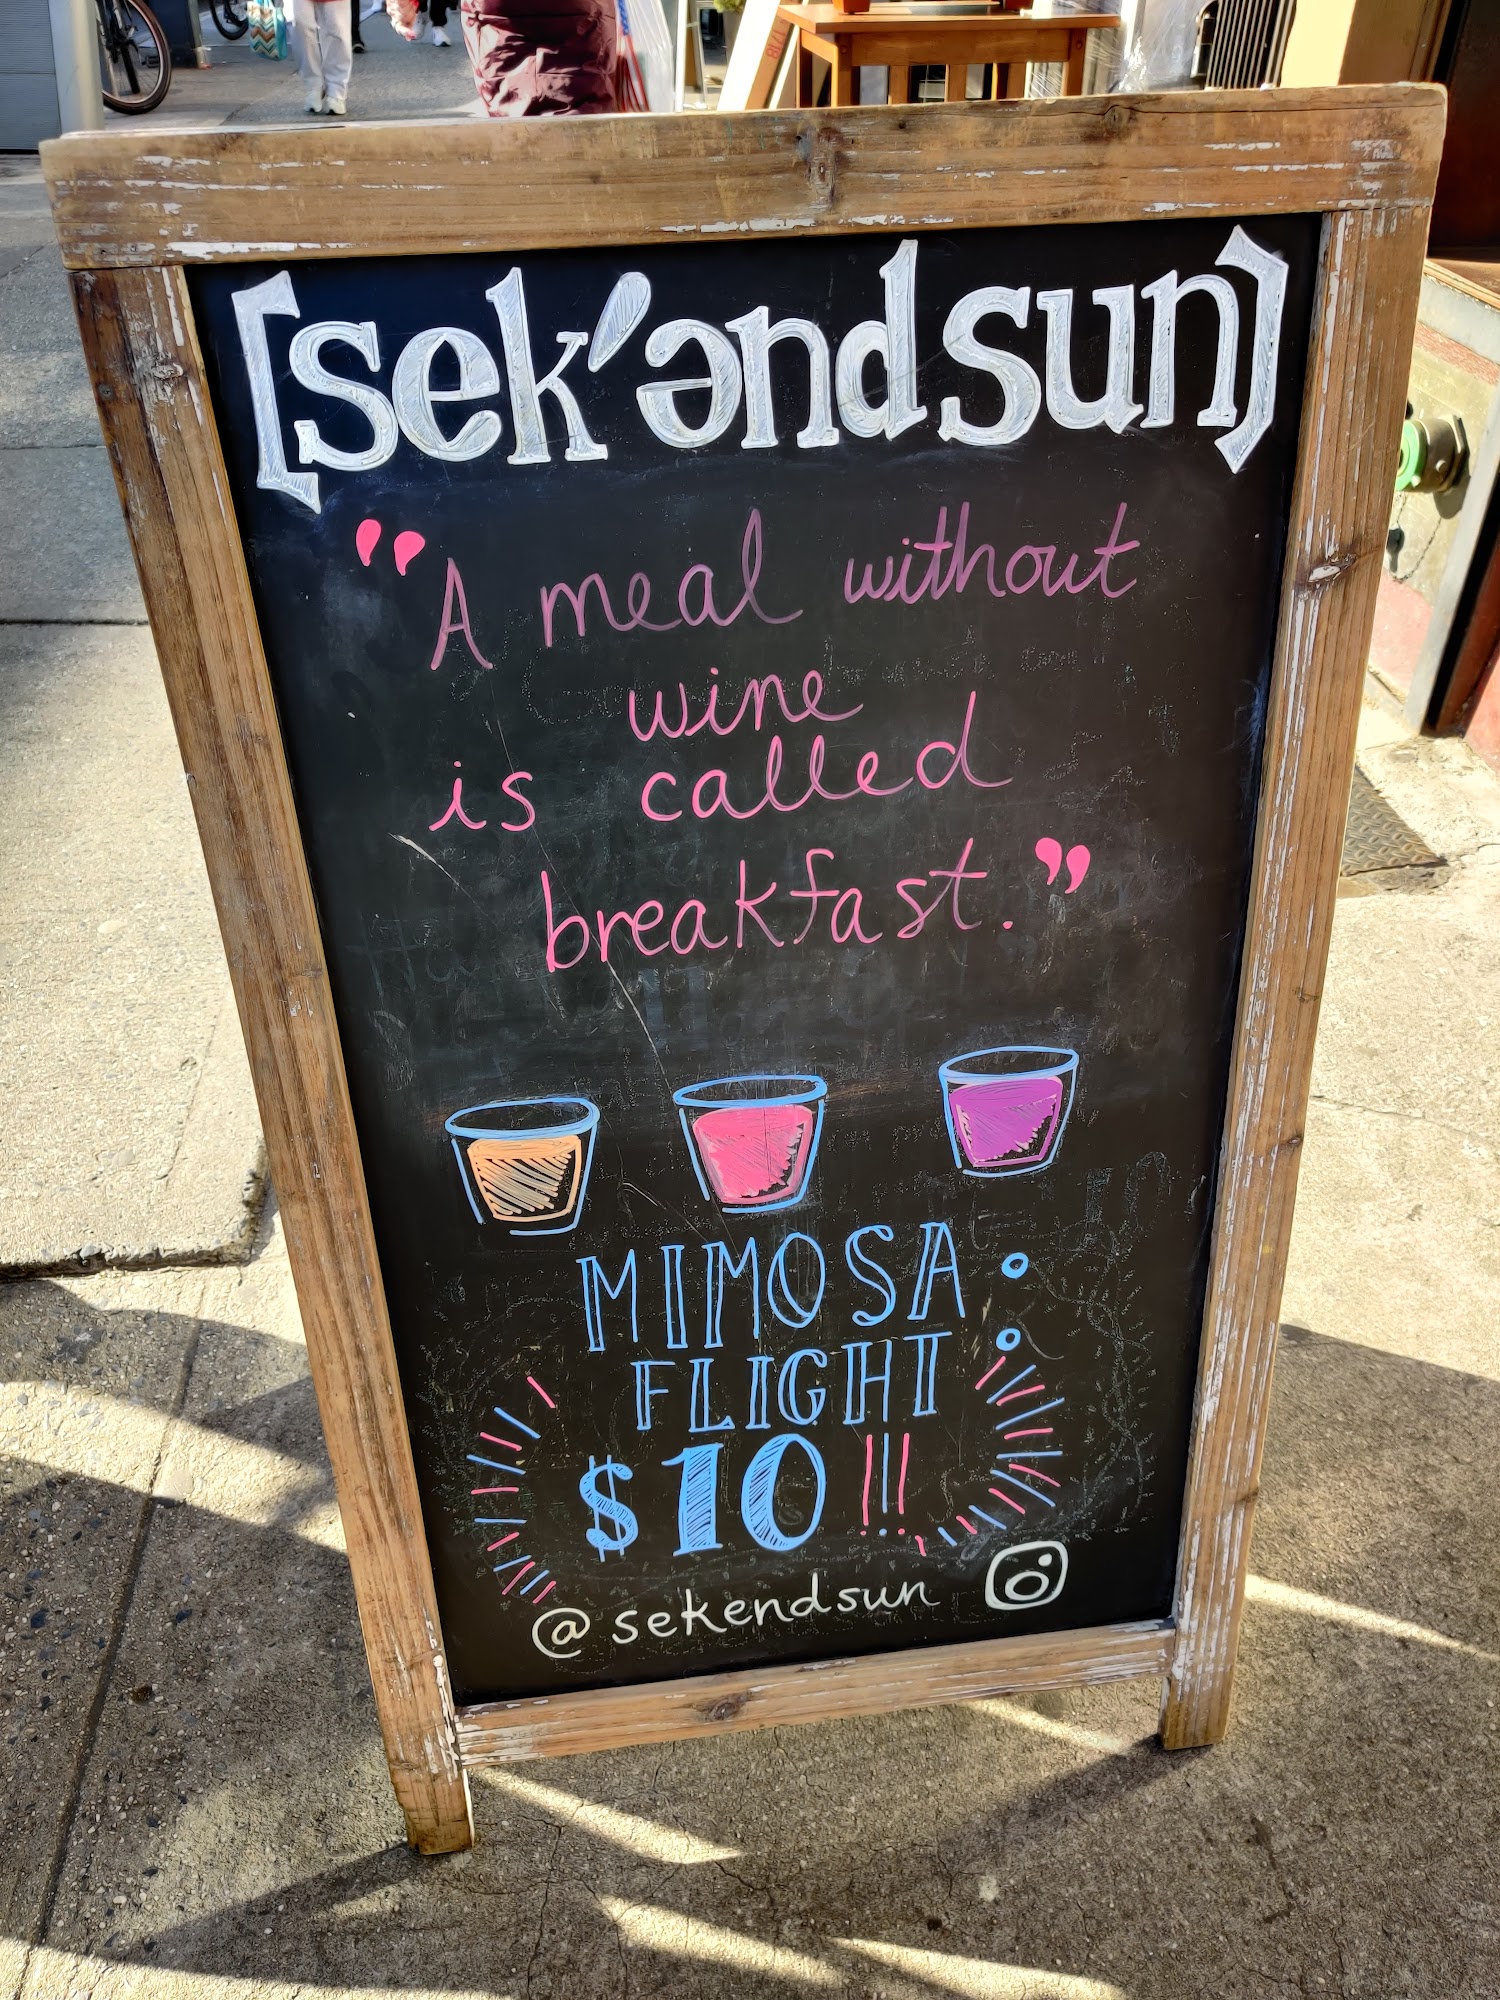 [sek'ənd sun]
"A meal without
wine
is called
breakfast."
MIMOSA :
FLIGHT
$10!!!
@sekendsun